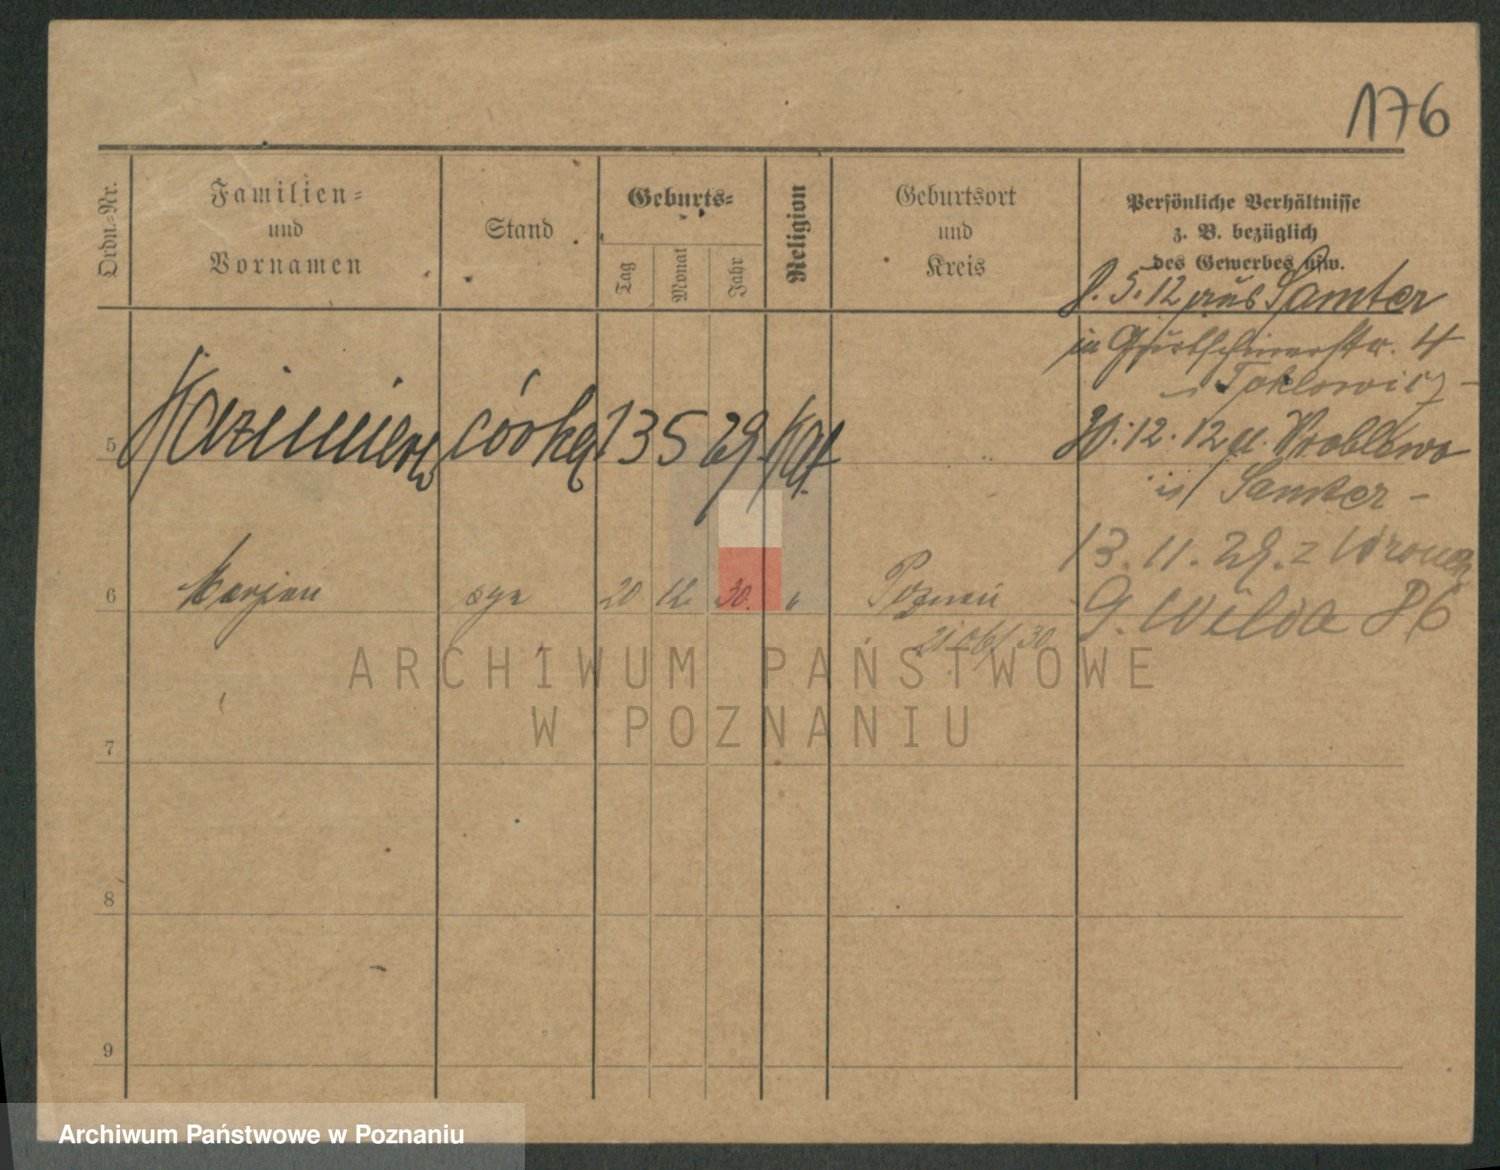 176
Ordn.-Nr.
Familien-
und
Vornamen
Stand
Geburts-
Tag
Monat
Jahr
Religion
Geburtsort
und
Kreis
Persönliche Verhältnisse
z. B. bezüglich
des Gewerbes usw.
8. 5. 12 aus Samter
in 4
5 Kazimiera córka 13 5 29 Kat
12. 12 n. Wroblewo
Samter -
13. 11. 29. z Wronek
6 Marjan syn 20 12 30. " Poznań
G. Wilda 86
21 30
7
8
9
ARCHIWUM PAŃSTWOWE
W POZNANIU
Archiwum Państwowe w Poznaniu